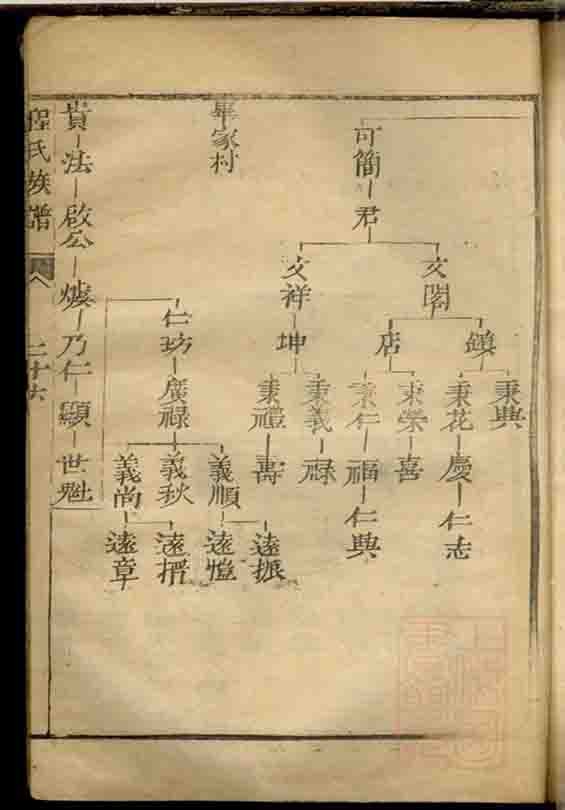 可簡
君
文閣
文祥
鎮
店
坤
秉典
秉花
秉榮
秉仁
秉義
秉禮
慶
喜
福
祿
壽
仁志
仁典
畢家村
仁玏
廣祿
義順
義秋
義尚
遠振
遠愷
遠搢
遠章
貴
法
啟公
乃仁
顯
世魁
程氏族譜
二十六